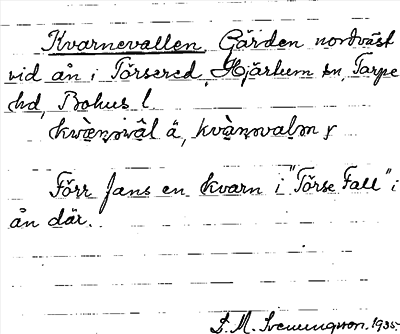 Kvarnevallen, Gärden nordväst
vid ån i Törsered, Hjärtum sn, Torpe
hd, Bohus l.
kvæ̀ṇəvâl ä, kvàṇəvalən y
Förr fans en kvarn i "Törse Fall" i
ån där.
D. M. Svenungsson. 1935.